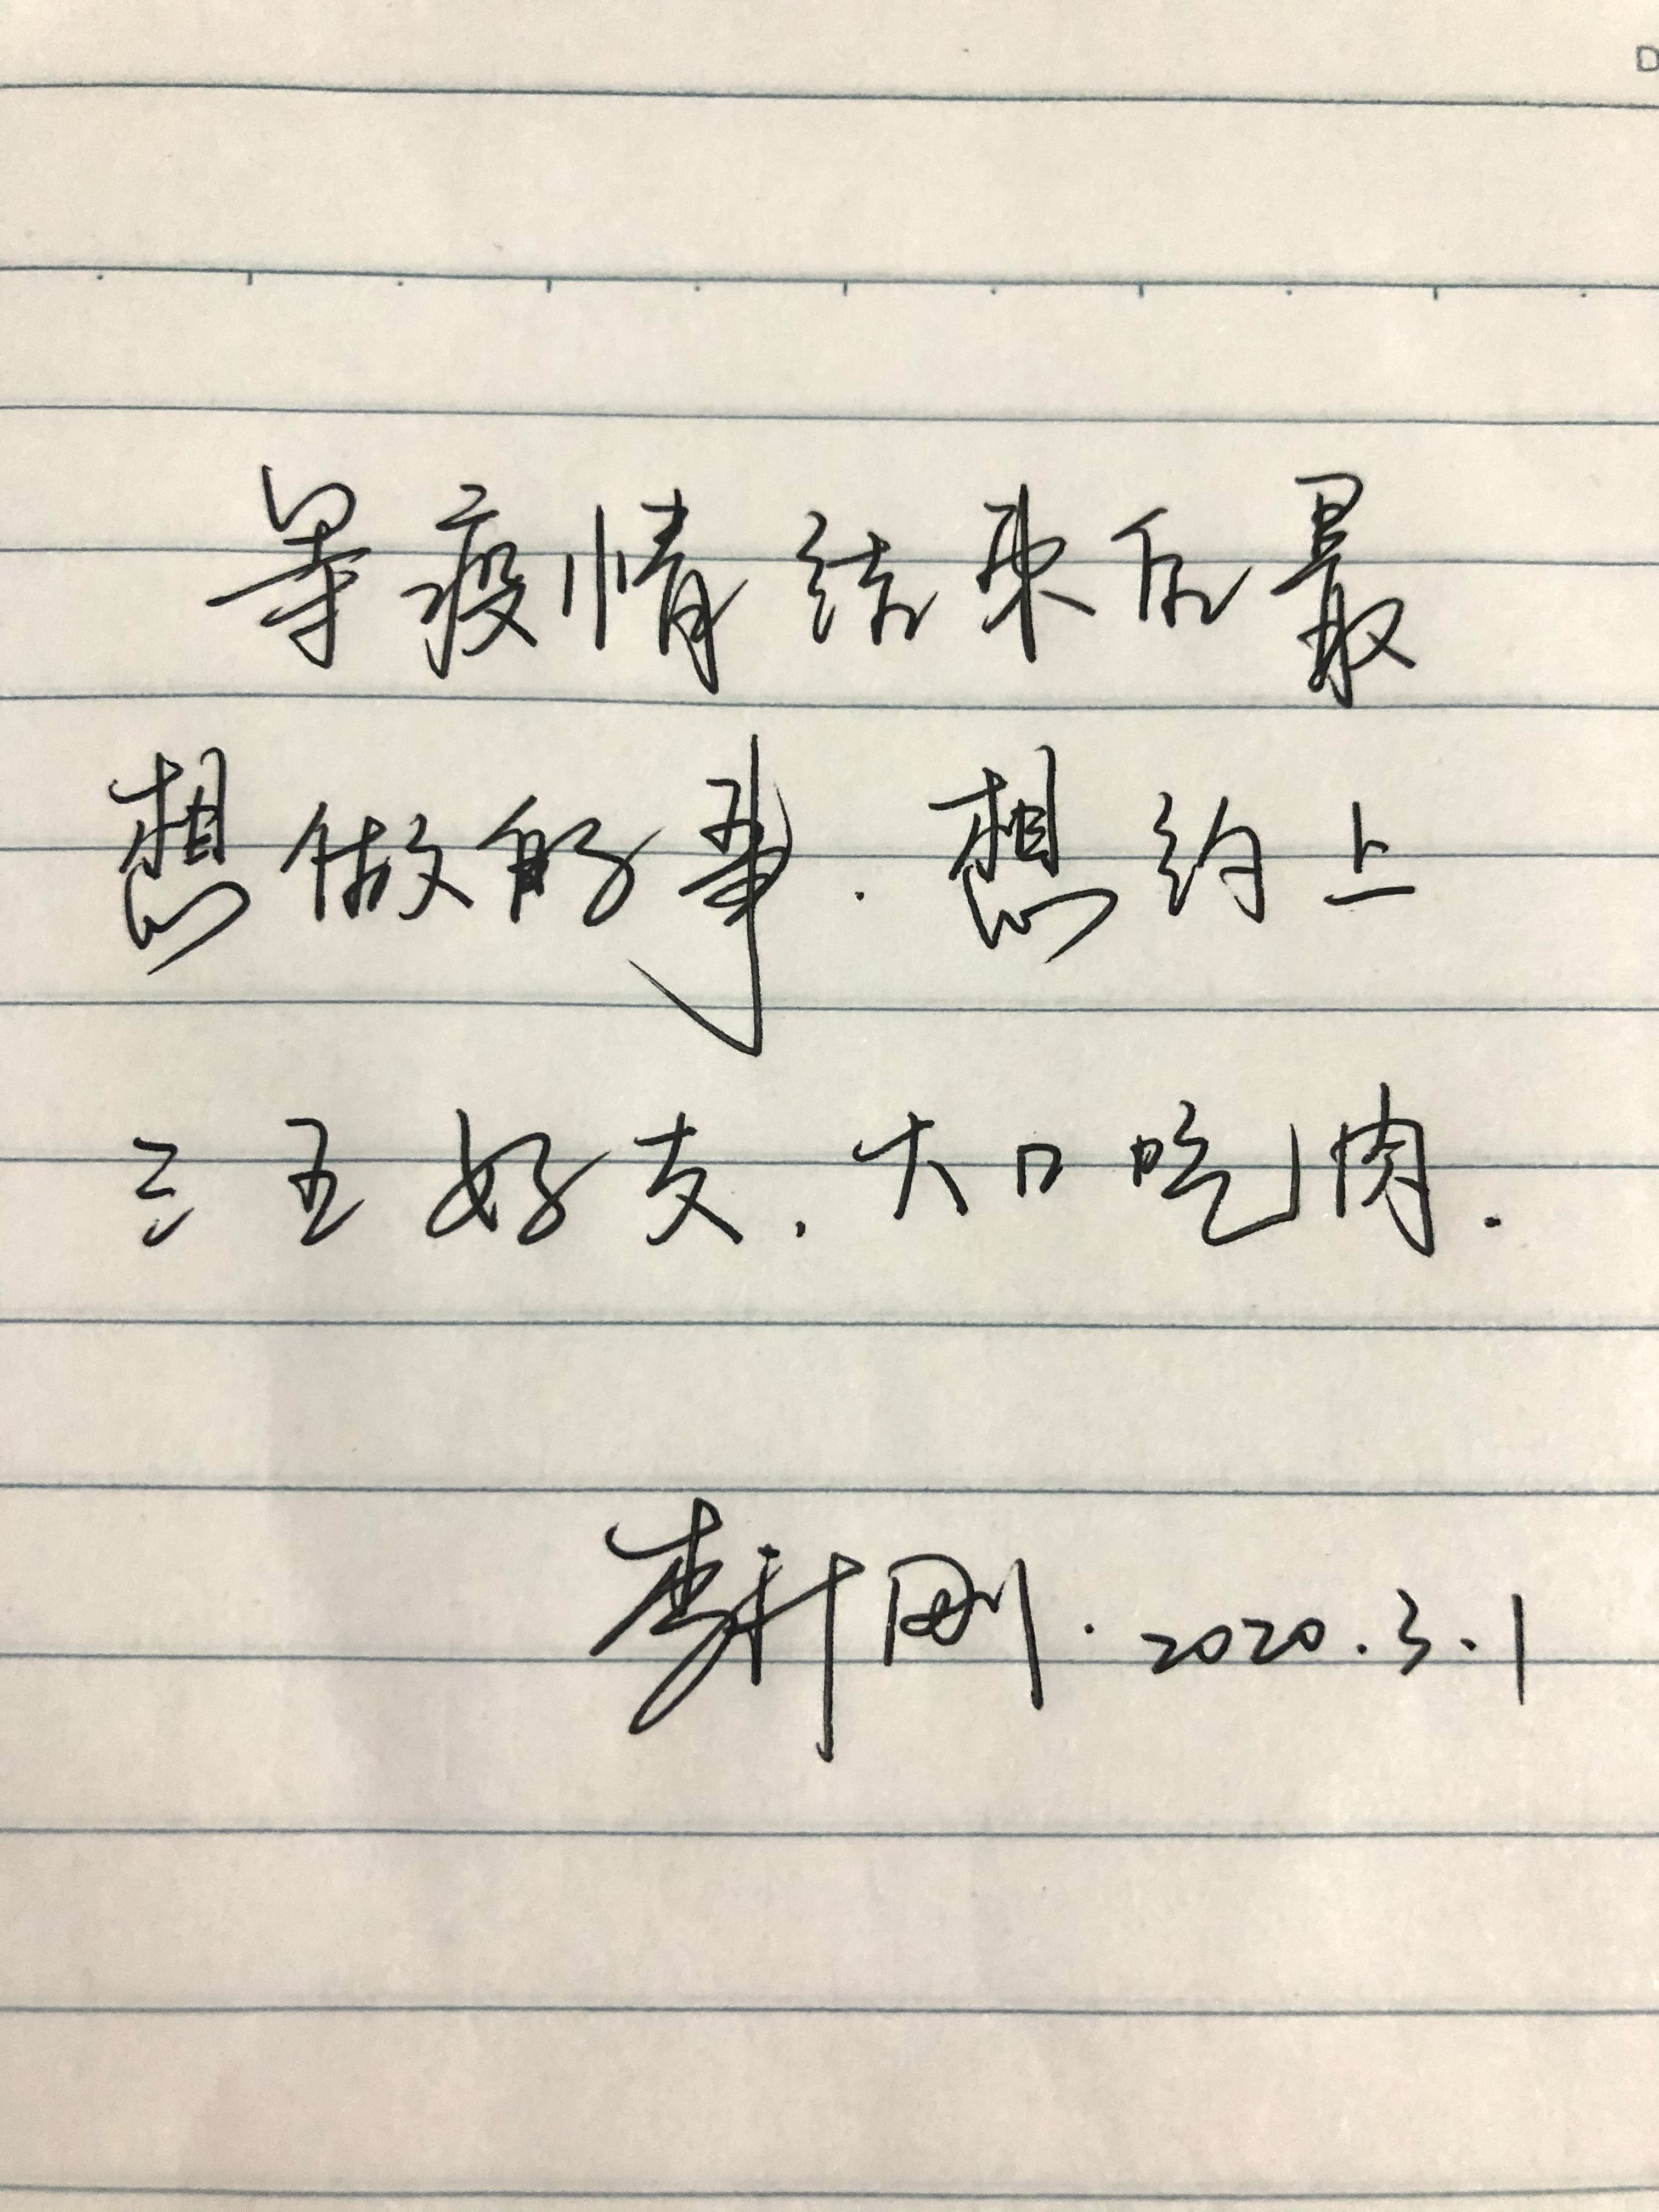 等疫情结束后最
想做的事.想约上
三五好友.大口吃肉.
刚.2020.3.1
D